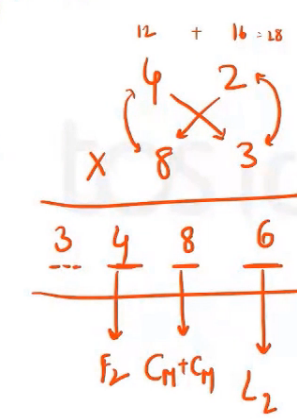 12 + 16 = 28
4 2
x 8 3
3 4 8 6
F2 CM+CM L2